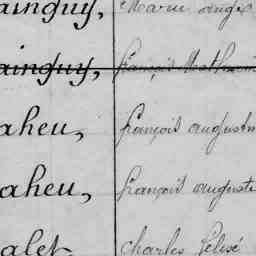 ainguy, Marie ange
ainguy, françois Mathurin
aheu, françois augustin
aheu, françois august
alet charles félix